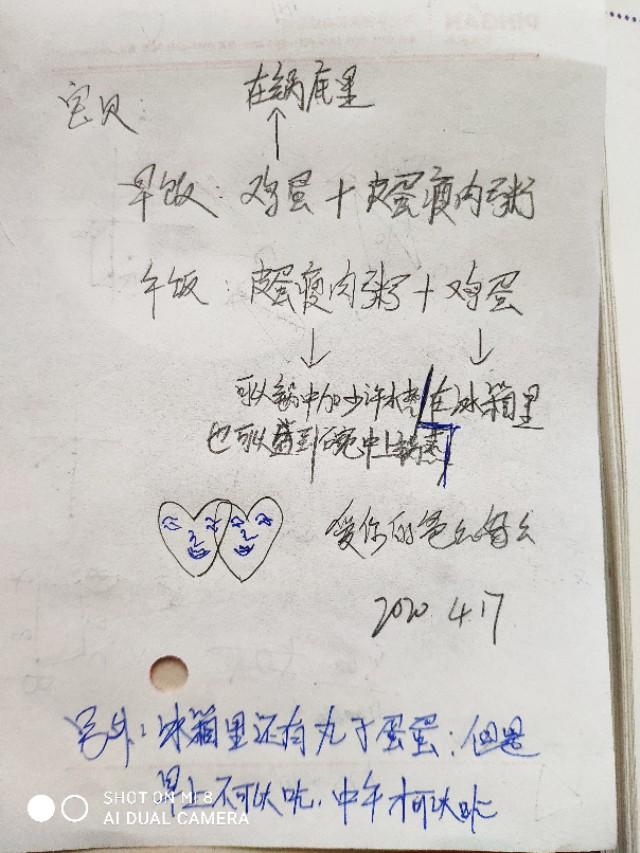 在锅底里
宝贝
早饭：鸡蛋+皮蛋瘦肉粥
午饭：皮蛋瘦肉粥+鸡蛋
可以锅中加少许水 在冰箱里
也可以盛到碗中上锅蒸
爱你的爸々妈々
2020.4.17
另外：冰箱里还有丸子蛋蛋；但是
早上不可以吃，中午才可以吃
SHOT ON MI 8
AI DUAL CAMERA